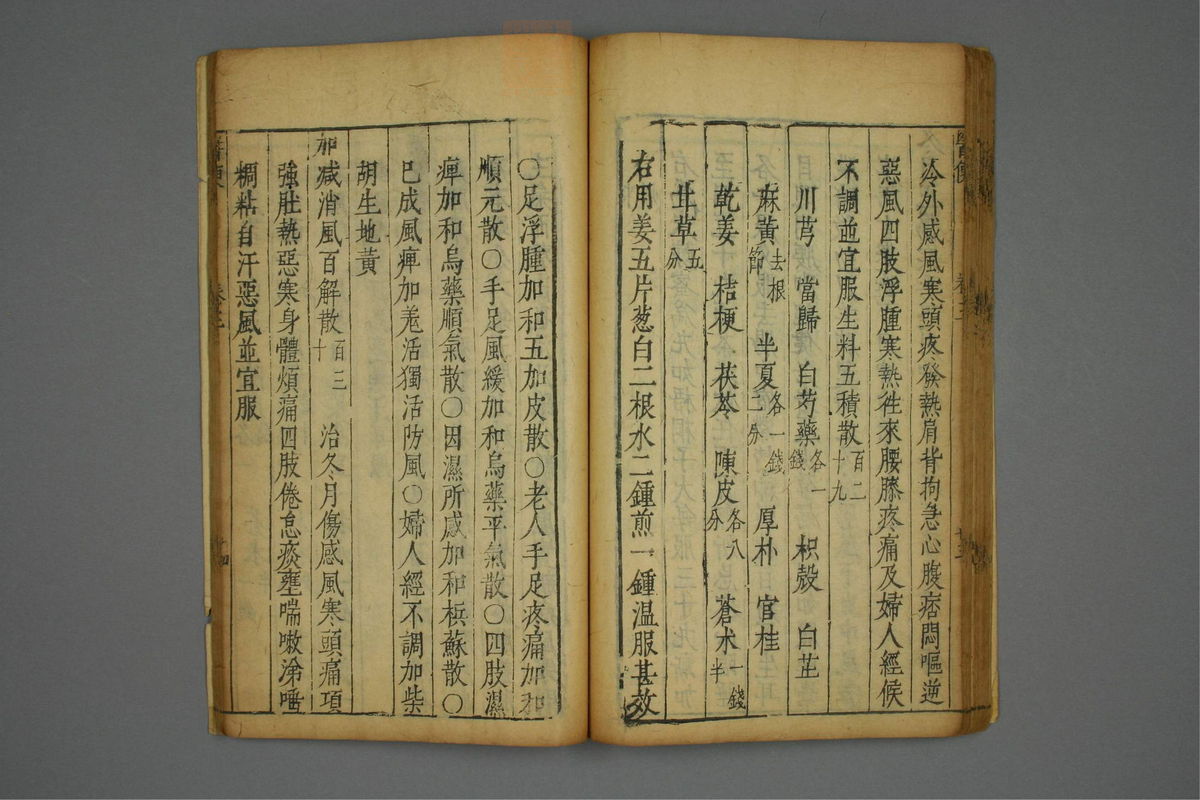 冷外感風寒頭疼發熱肩背拘急心腹痞悶嘔逆
惡風四肢浮腫寒熱徃來腰膝疼痛及婦人經候
不調並宜服生料五積散百二十九
川芎 當歸 白芍藥各一錢 枳殼 白芷
麻黃去根節 半夏各一錢二分 厚朴 官桂
乾姜 桔梗 茯苓 陳皮各八分 蒼朮一錢半
甘草五分
右用姜五片葱白二根水二鍾煎一鍾温服甚效
○足浮腫加和五加皮散○老人手足疼痛加和
順元散○手足風緩加和烏藥平氣散○四肢濕
痺加和烏藥順氣散○因濕所感加和檳蘇散○
已成風痺加羗活獨活防風○婦人經不調加柴
胡生地黃
加减消風百解散百三十 治冬月傷感風寒頭痛項
強壯熱惡寒身體煩痛四肢倦怠痰壅喘嗽涕唾
稠粘自汗惡風並宜服
醫便
卷三
十四